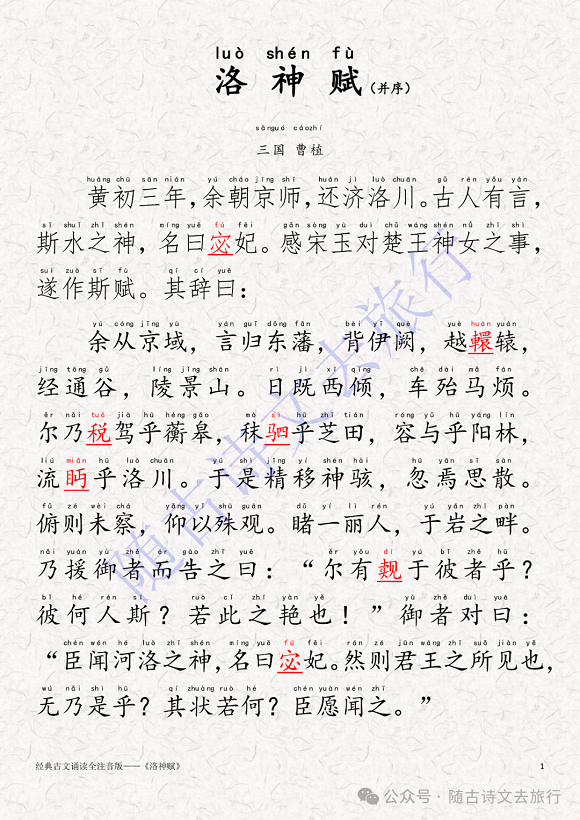 luò shén fù
洛神赋（并序）
sānguó cáozhí
三国 曹植
huáng chū sān nián yú cháo jīng shī huán jì luò chuān gǔ rén yǒu yán
黄初三年，余朝京师，还济洛川。古人有言，
sī shuǐ zhī shén míng yuē fú fēi gǎn sòng yù duì chǔ wáng shén nǚ zhī shì
斯水之神，名曰宓妃。感宋玉对楚王神女之事，
suì zuò sī fù qí cí yuē
遂作斯赋。其辞曰：
yú cóng jīng yù yán guī dōng fān bèi yī què yuè huán yuán
余从京域，言归东藩，背伊阙，越轘辕，
jīng tōng gǔ líng jǐng shān rì jì xī qīng chē dài mǎ fán
经通谷，陵景山。日既西倾，车殆马烦。
ěr nǎi tuō jià hū héng gāo mò sì hū zhī tián róng yǔ hū yáng lín
尔乃税驾乎蘅皋，秣驷乎芝田，容与乎阳林，
liú miǎn hū luò chuān yú shì jīng yí shén hài hū yān sī sàn
流眄乎洛川。于是精移神骇，忽焉思散。
fǔ zé wèi chá yǎng yǐ shū guān dǔ yí lì rén yú yán zhī pàn
俯则未察，仰以殊观。睹一丽人，于岩之畔。
nǎi yuán yù zhě ér gào zhī yuē ěr yǒu dí yú bǐ zhě hū
乃援御者而告之曰：“尔有觌于彼者乎？
bǐ hé rén sī ruò cǐ zhī yàn yě yù zhě duì yuē
彼何人斯？若此之艳也！”御者对曰：
chén wén hé luò zhī shén míng yuē fú fēi rán zé jūn wáng zhī suǒ jiàn yě
“臣闻河洛之神，名曰宓妃。然则君王之所见也，
wú nǎi shì hū qí zhuàng ruò hé chén yuàn wén zhī
无乃是乎？其状若何？臣愿闻之。”
随古诗文去旅行
经典古文诵读全注音版——《洛神赋》 1
公众号·随古诗文去旅行